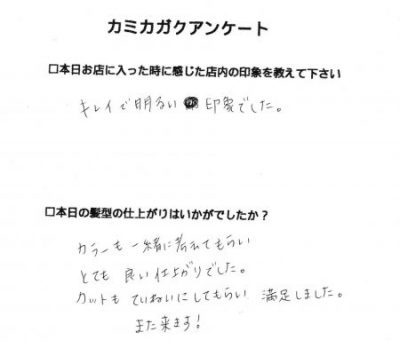 カミカガクアンケート
□本日お店に入った時に感じた店内の印象を教えて下さい
キレイで明るい 印象でした。
□本日の髪型の仕上がりはいかがでしたか？
カラーも一緒に考えてもらい
とても良い仕上がりでした。
カットもていねいにしてもらい 満足しました。
また来ます！